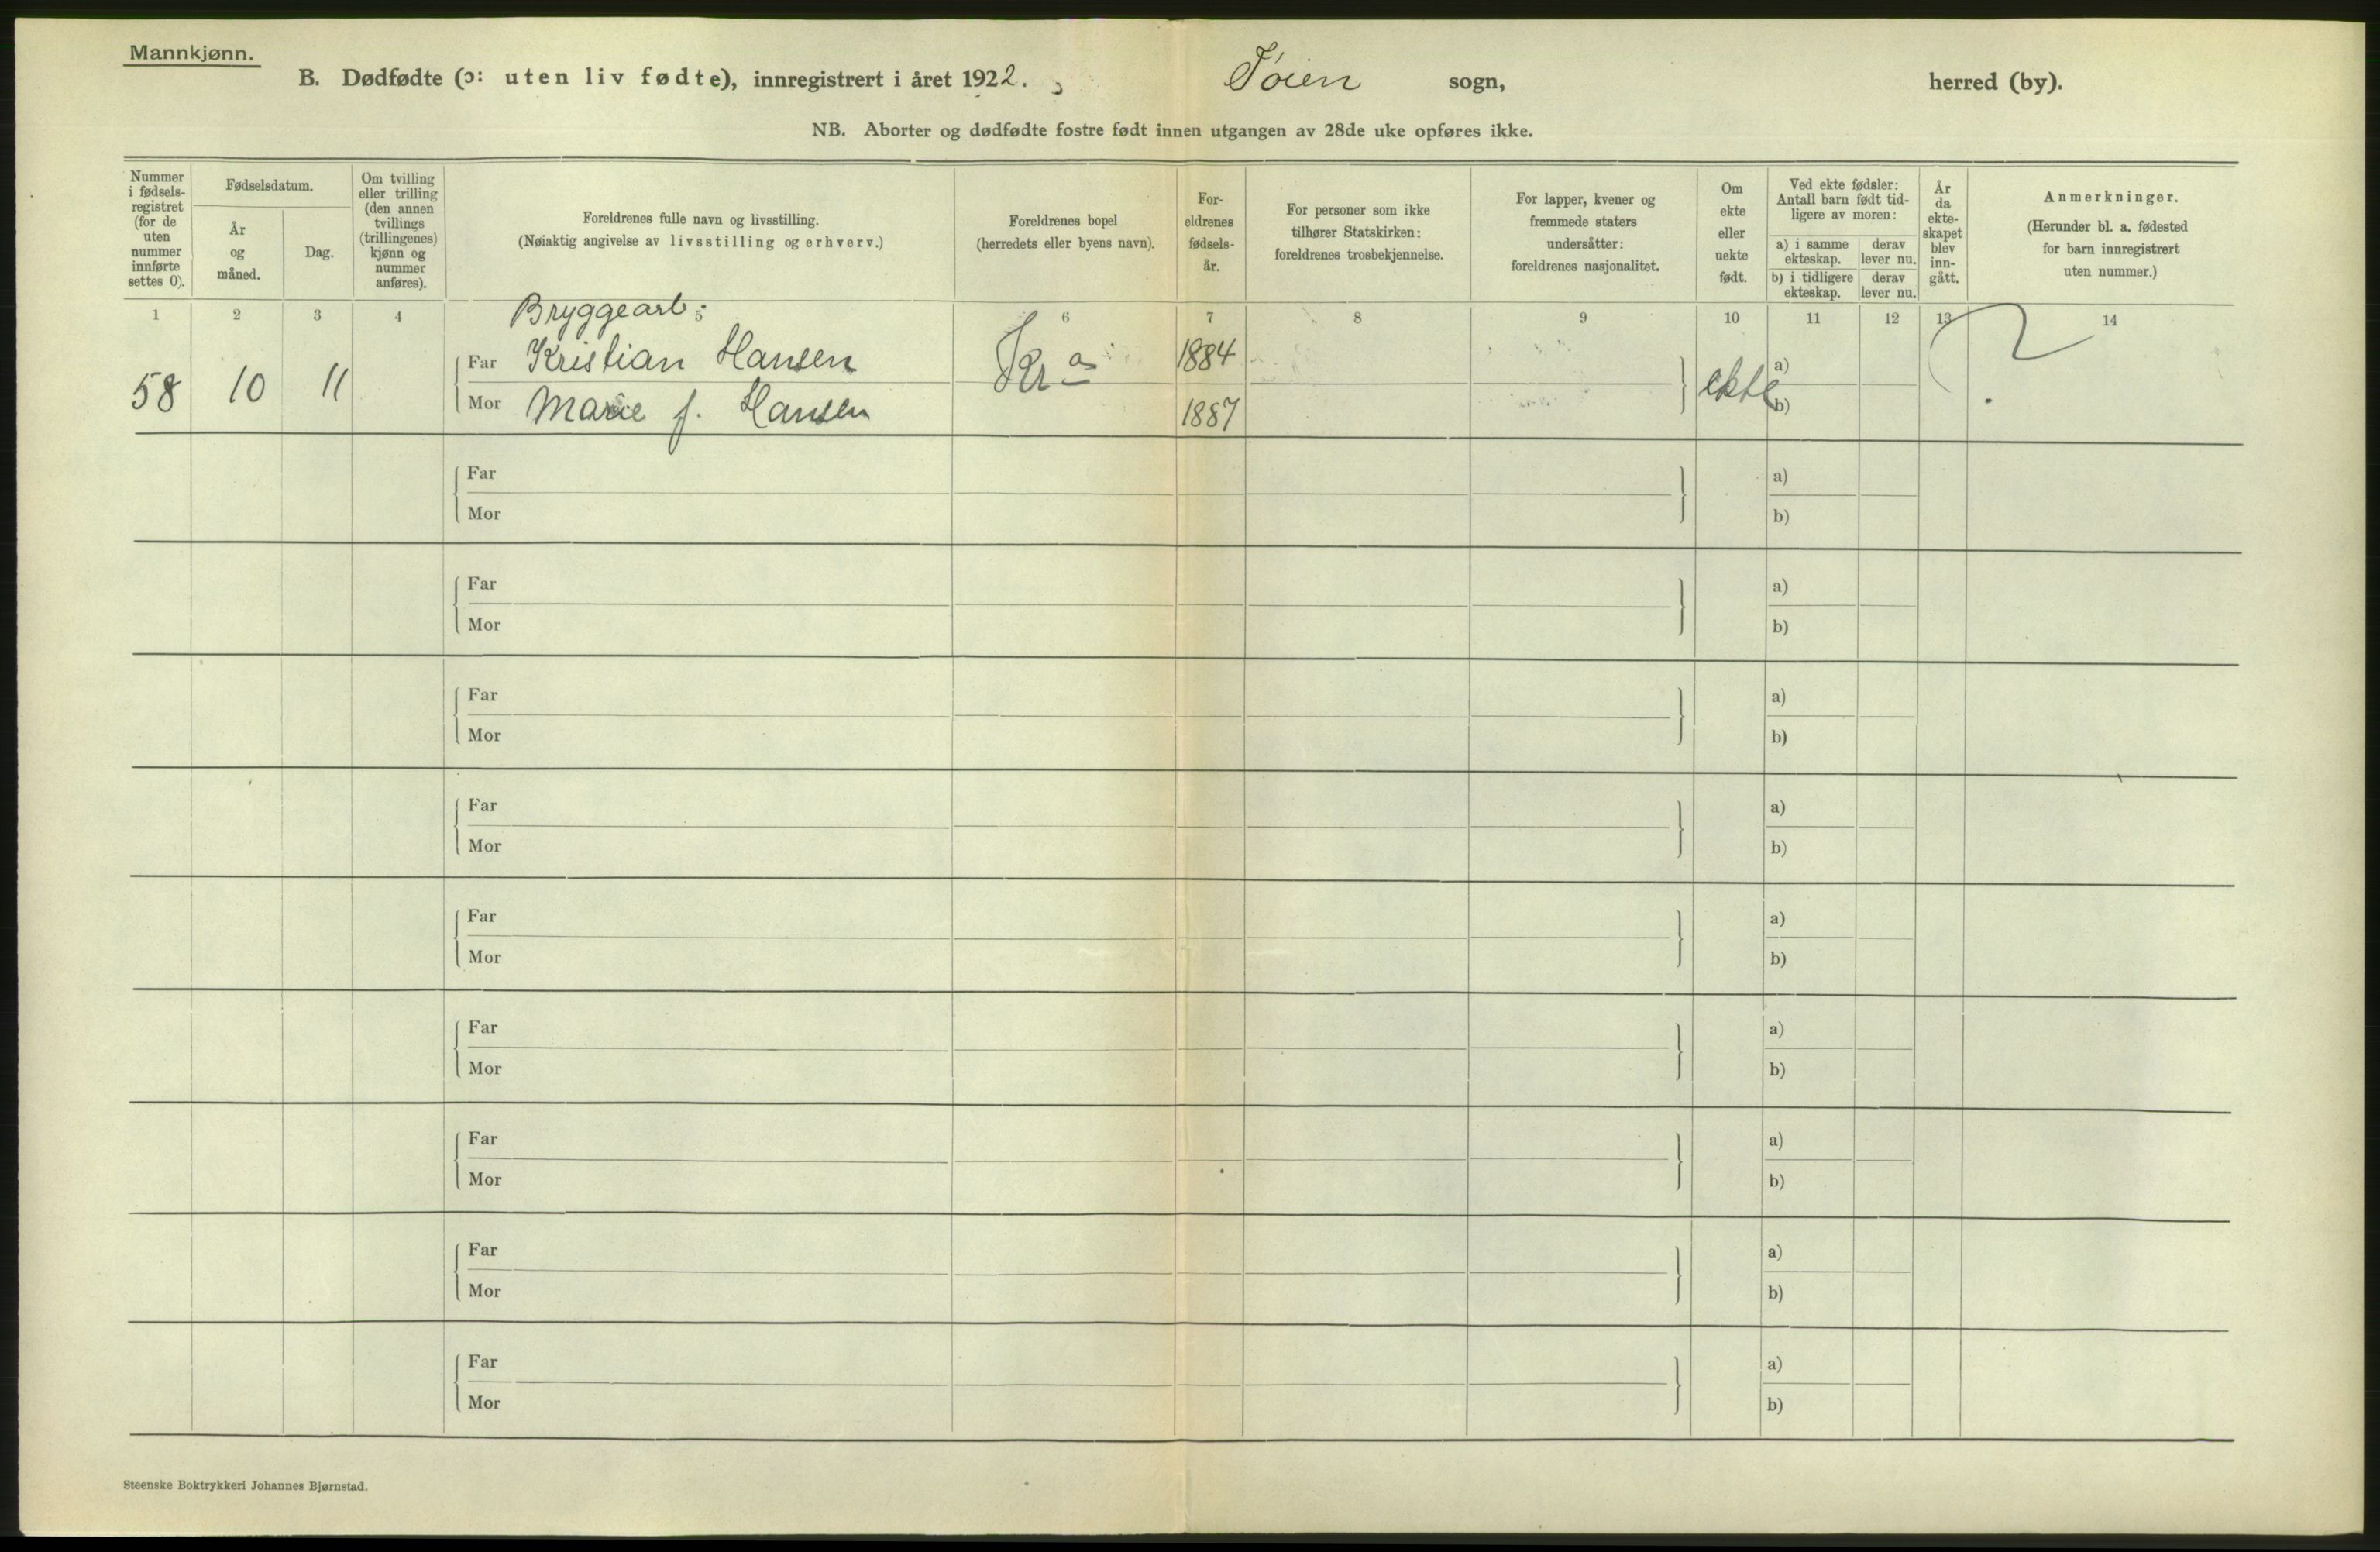 Mannkjønn.
B. Dødfødte (ɔ: uten liv fødte), innregistrert i året 1922. Tøien sogn, herred (by).
NB. Aborter og dødfødte fostre født innen utgangen av 28de uke opføres ikke.
Nummer i fødsels-registret (for de uten nummer innførte settes 0).
Fødselsdatum.
År og måned.
Dag.
Om tvilling eller trilling (den annen tvillings (trillingenes) kjønn og nummer anføres).
Foreldrenes fulle navn og livsstilling.
(Nøiaktig angivelse av livsstilling og erhverv.)
Foreldrenes bopel
(herredets eller byens navn).
For-eldrenes fødsels-år.
For personer som ikke tilhører Statskirken: foreldrenes trosbekjennelse.
For lapper, kvener og fremmede staters undersåtter: foreldrenes nasjonalitet.
Om ekte eller uekte født.
Ved ekte fødsler: Antall barn født tid-ligere av moren:
a) i samme ekteskap.
derav lever nu.
b) i tidligere ekteskap.
derav lever nu.
År da ekte-skapet blev inn-gått.
Anmerkninger.
(Herunder bl. a. fødested for barn innregistrert uten nummer.)
1 2 3 4 5 6 7 8 9 10 11 12 13 14
Bryggearb.
58 10 11 Far Kristian Hansen Kra 1884 ekte a)
Mor Marie f. Hansen 1887 b)
Far a)
Mor b)
Far a)
Mor b)
Far a)
Mor b)
Far a)
Mor b)
Far a)
Mor b)
Far a)
Mor b)
Far a)
Mor b)
Far a)
Mor b)
Far a)
Mor b)
Steenske Boktrykkeri Johannes Bjørnstad.